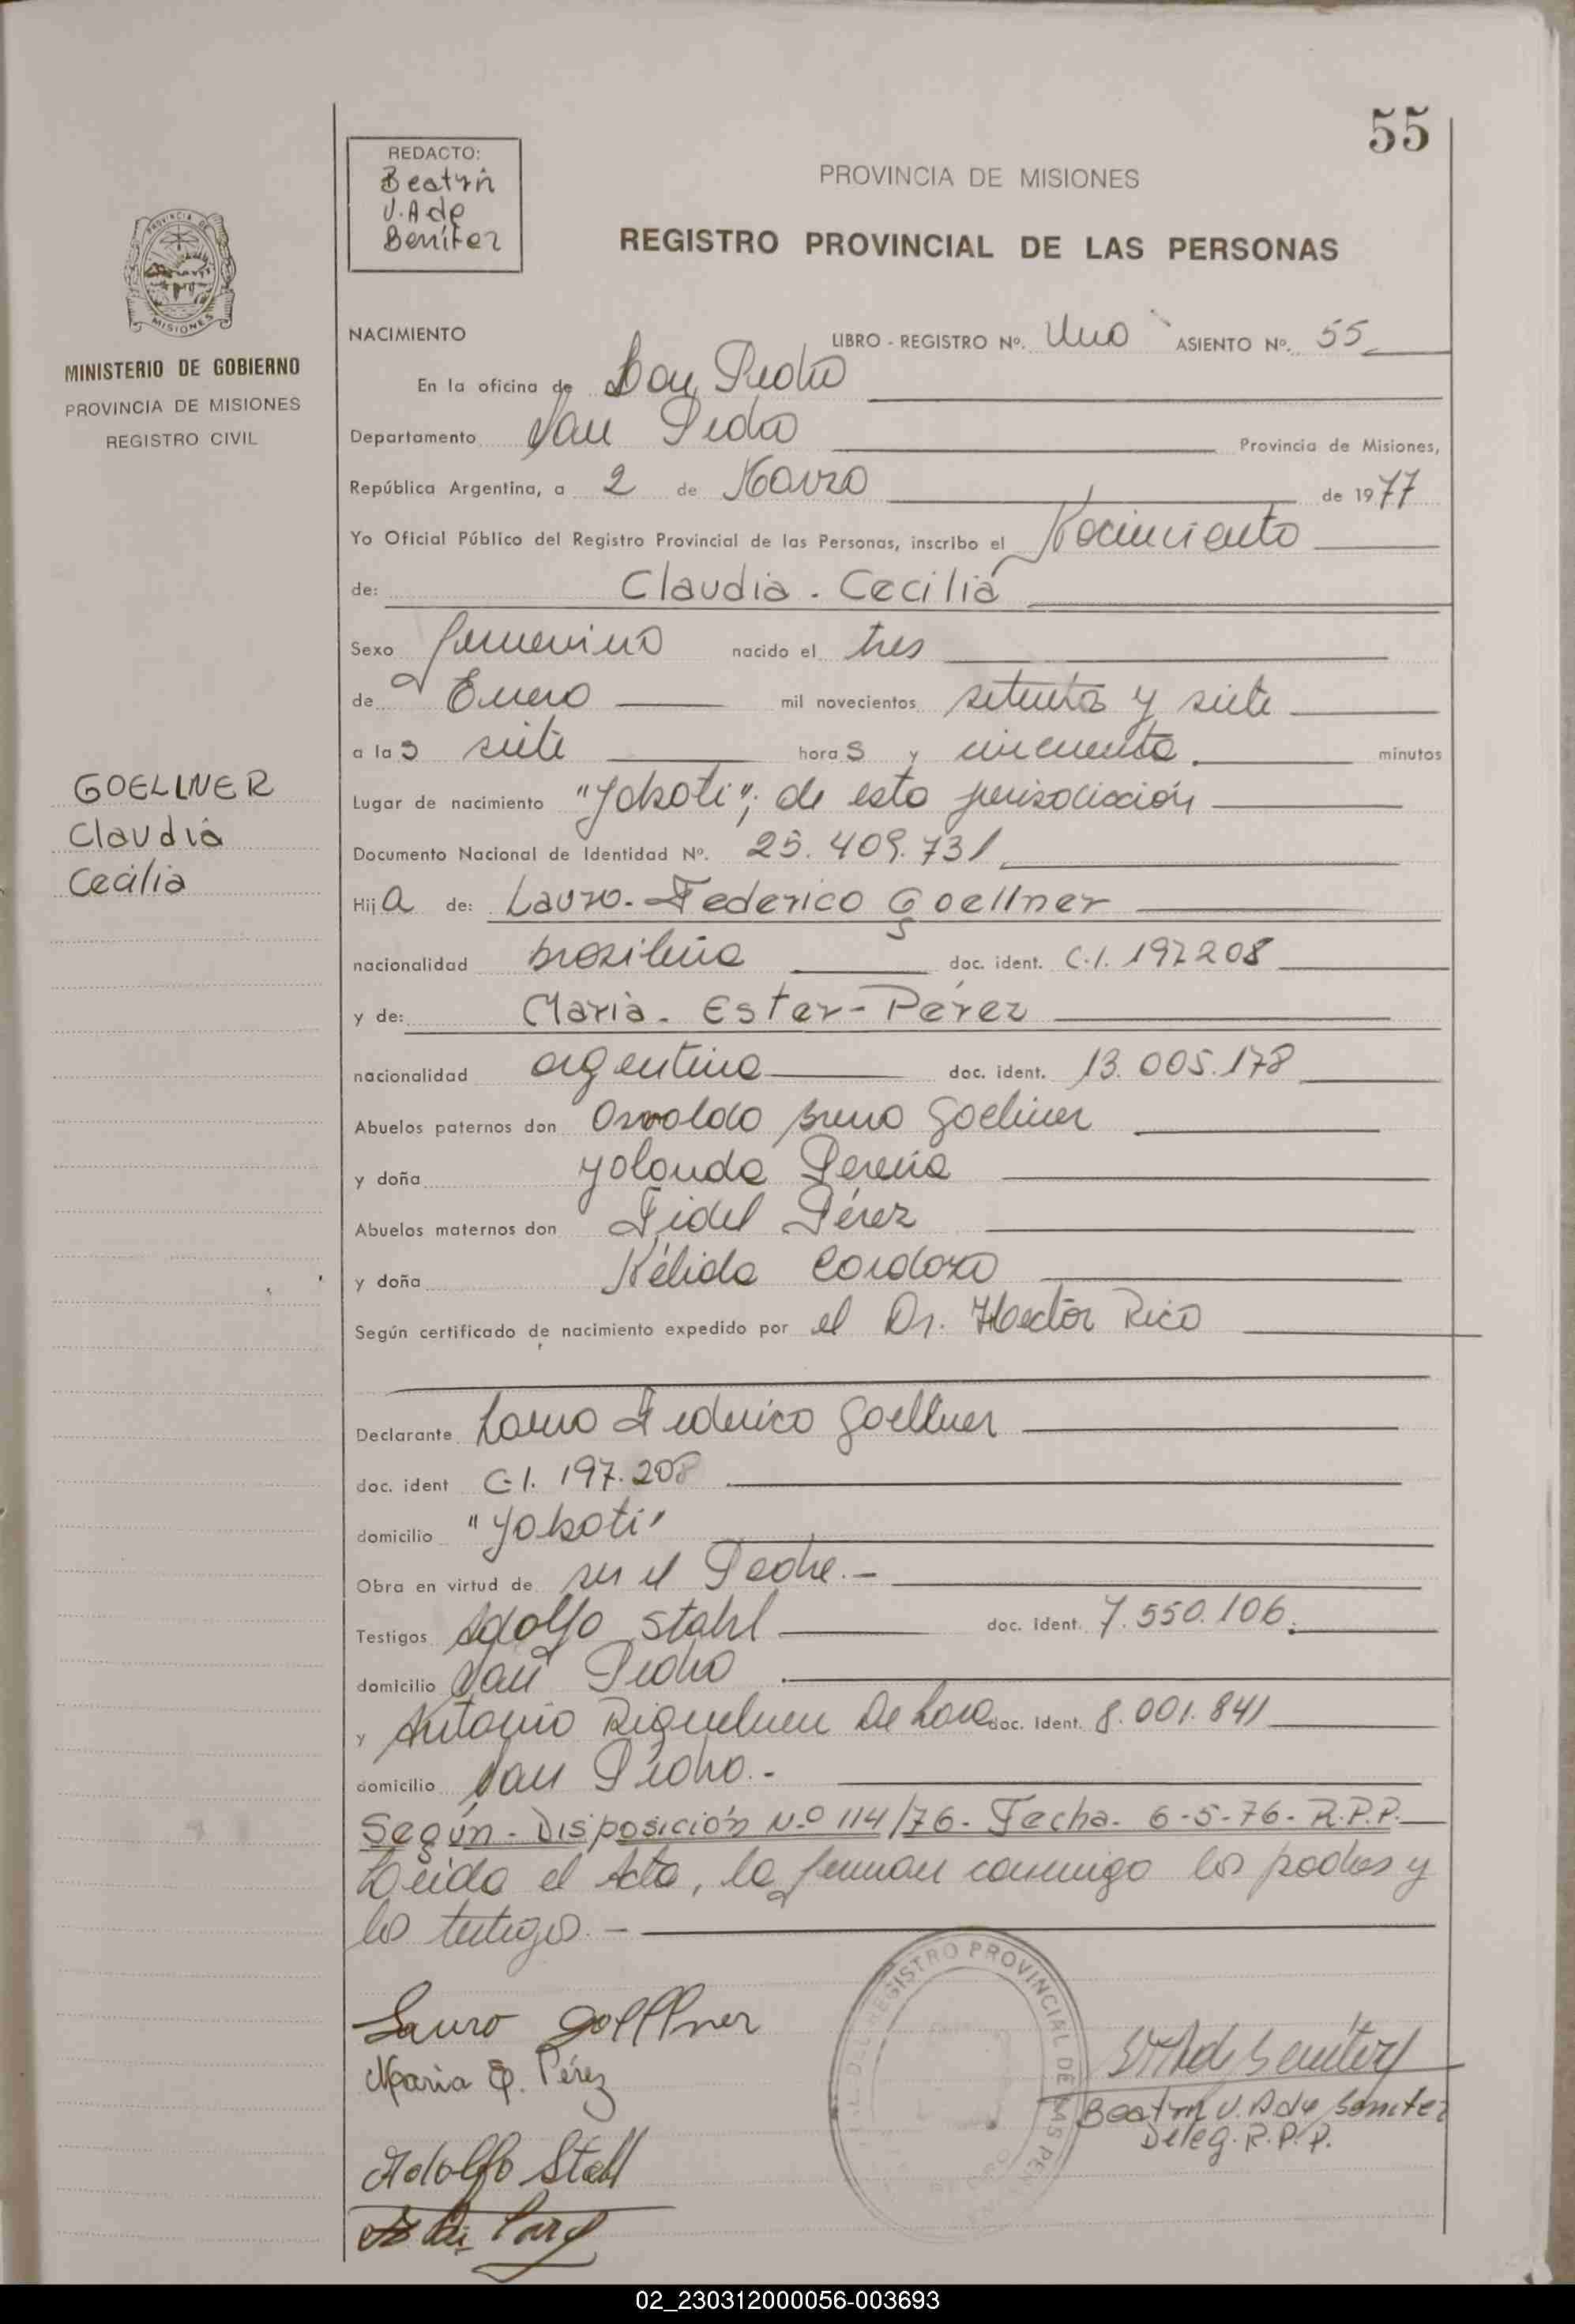 55
REDACTO:
Beatriz
V. A de
Benítez
PROVINCIA DE MISIONES
REGISTRO PROVINCIAL DE LAS PERSONAS
PROVINCIA DE
MISIONES
MINISTERIO DE GOBIERNO
PROVINCIA DE MISIONES
REGISTRO CIVIL
GOELLNER
Claudia
Cecilia
NACIMIENTO LIBRO - REGISTRO Nº. Uno ASIENTO Nº. 55
En la oficina de San Pedro
Departamento San Pedro Provincia de Misiones,
República Argentina, a 2 de Marzo de 1977
Yo Oficial Público del Registro Provincial de las Personas, inscribo el Nacimiento
de: Claudia - Cecilia
Sexo femenino nacido el tres
de Enero mil novecientos setenta y siete
a las siete horas y cincuenta minutos
Lugar de nacimiento "Yakoti"; de esta jurisdicción
Documento Nacional de Identidad Nº. 25.409.731
Hija de: Lauro - Federico Goellner
nacionalidad brasileña doc. ident. C.I. 197208
y de: María - Ester - Pérez
nacionalidad argentina doc. ident. 13.005.178
Abuelos paternos don Osvaldo Breno Goellner
y doña Yolanda Pereira
Abuelos maternos don Fidel Pérez
y doña Nélida Cardozo
Según certificado de nacimiento expedido por el Dr. Hector Rico
Declarante Lauro Federico Goellner
doc. ident C.I. 197.208
domicilio "Yakoti"
Obra en virtud de ser el Padre.-
Testigos Adolfo Stahl doc. ident. 7.550.106.
domicilio San Pedro
y Antonio Riquelmen De Lara doc. ident. 8.001.841
domicilio San Pedro.-
Según - Disposición N.º 114/76 - Fecha - 6-5-76 - R.P.P.
Leída el Acta, la firman conmigo los padres y
los testigos.-
Lauro Goellner
Maria E. Pérez
Adolfo Stahl
REGISTRO PROVINCIAL DE LAS PER
Beatriz V. A de Benitez
Deleg. R.P.P.
02_230312000056-003693